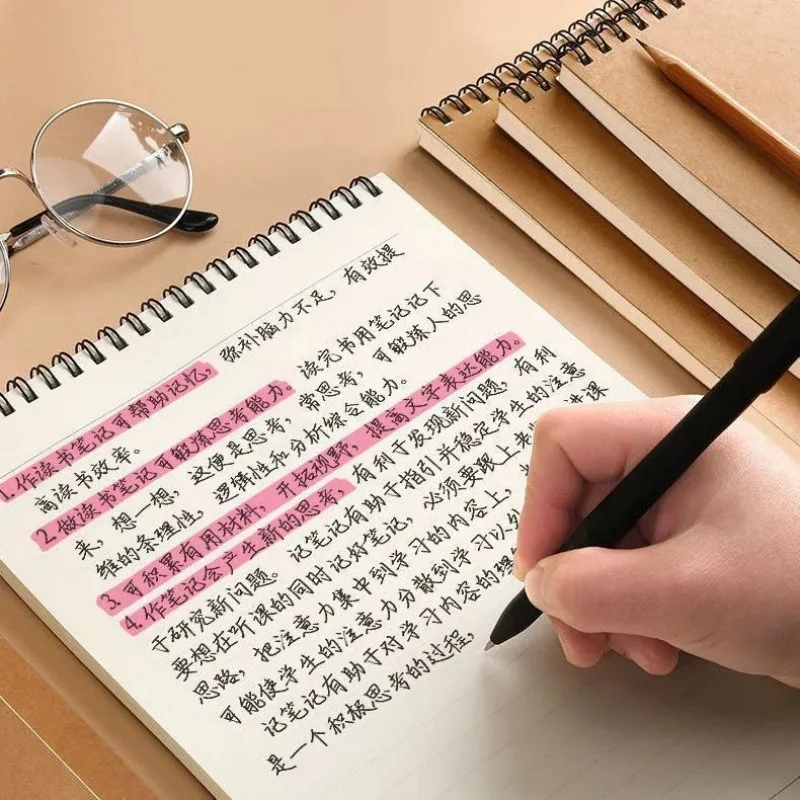 1.作读书笔记可帮助记忆, 弥补脑力不足, 有效提
高读书效率。
2.做读书笔记可锻炼思考能力。读完书用笔记记下
来, 想一想, 这便是思考, 常思考, 可锻炼人的思
维的条理性, 逻辑性和分析综合能力。
3.可积累有用材料, 开拓视野, 提高文字表达能力。
4.作笔记会产生新的思考, 有利于发现新问题, 有利
于研究新问题。记笔记有助于指引并稳定学生的注意
要想在听课的同时记好笔记, 必须要跟上老 讲课
思路, 把注意力集中到学习的内容上,
可能使学生的注意力分散到学习以外
记笔记有助于对学习内容的理
是一个积极思考的过程,